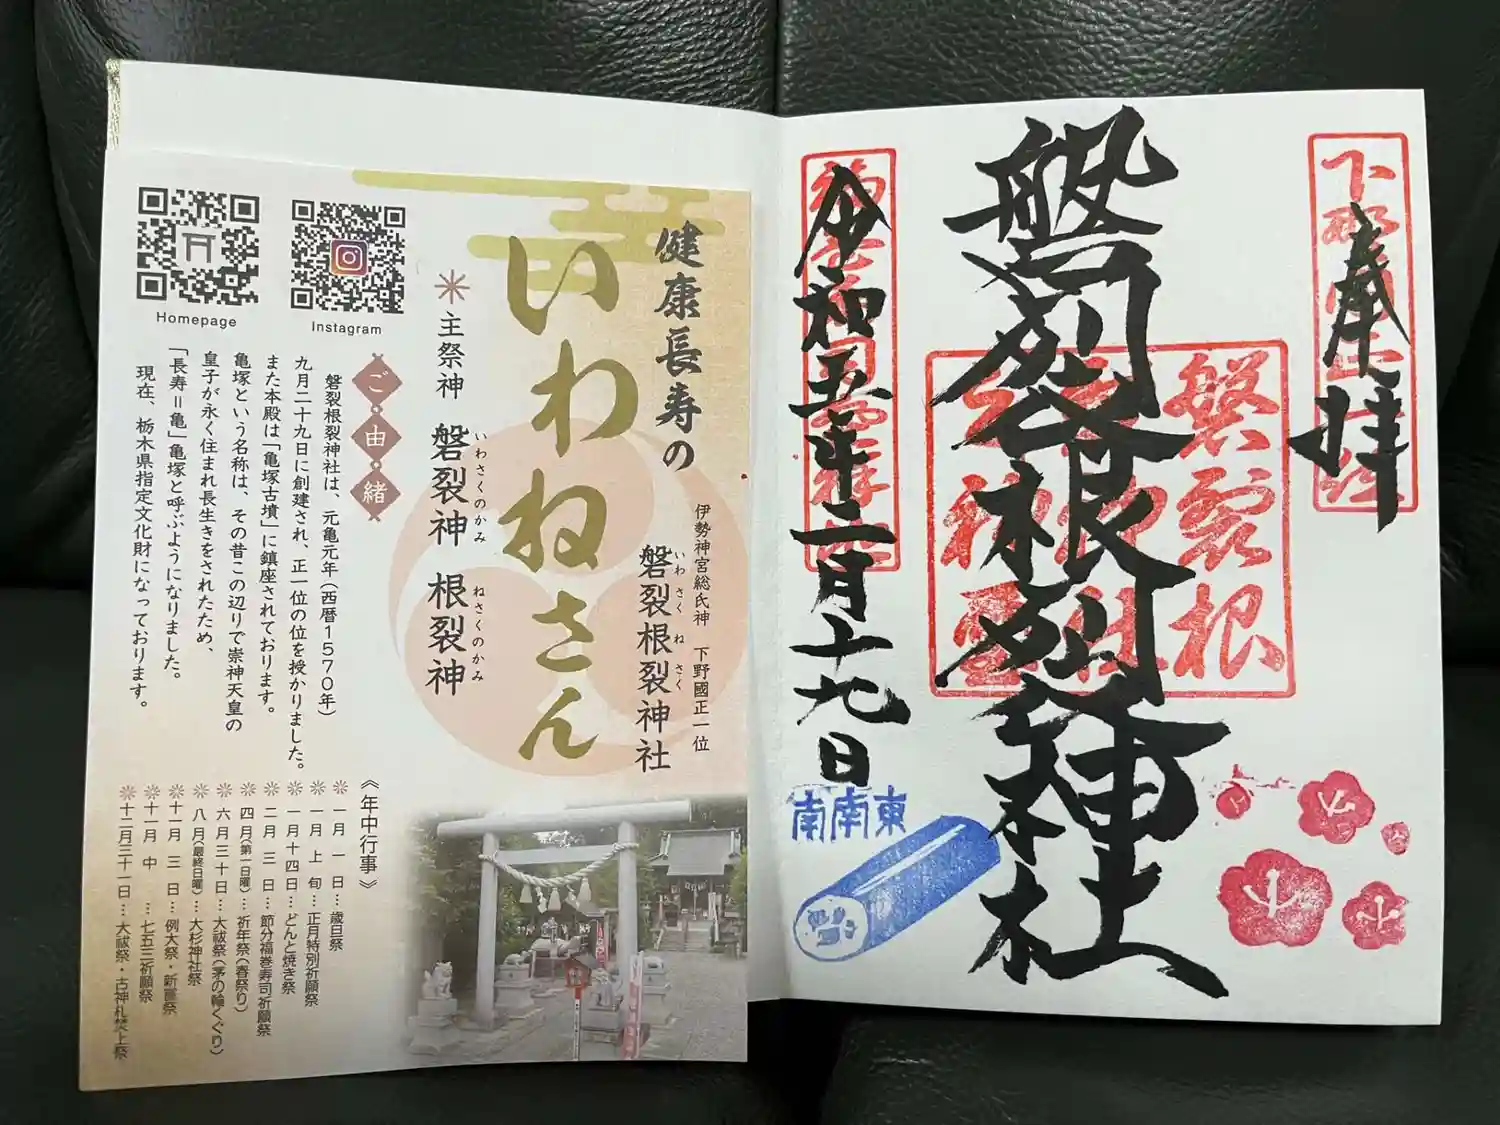 奉拝
下野國正一位
磐裂根
磐裂根裂神社
令和五年二月十九日
南南東
健康長寿の
いわねさん
伊勢神宮総氏神 下野國正一位
磐裂根裂神社
いわさくねさく
主祭神 磐裂神 根裂神
いわさくのかみ ねさくのかみ
Homepage
Instagram
ご由緒
磐裂根裂神社は、元亀元年(西暦1570年)
九月二十九日に創建され、正一位の位を授かりました。
また本殿は「亀塚古墳」に鎮座されております。
亀塚という名称は、その昔この辺りで崇神天皇の
皇子が永く住まれ長生きをされたため、
「長寿=亀」亀塚と呼ぶようになりました。
現在、栃木県指定文化財になっております。
《年中行事》
一月一日…歳旦祭
一月上旬…正月特別祈願祭
一月十四日…どんと焼き祭
二月三日…節分福巻寿司祈願祭
四月(第一日曜)…祈年祭(春祭り)
六月三十日…大祓祭(茅の輪くぐり)
八月(最終日曜)…大杉神社祭
十一月三日…例大祭・新嘗祭
十一月中…七五三祈願祭
十二月三十一日…大祓祭・古神札焚上祭